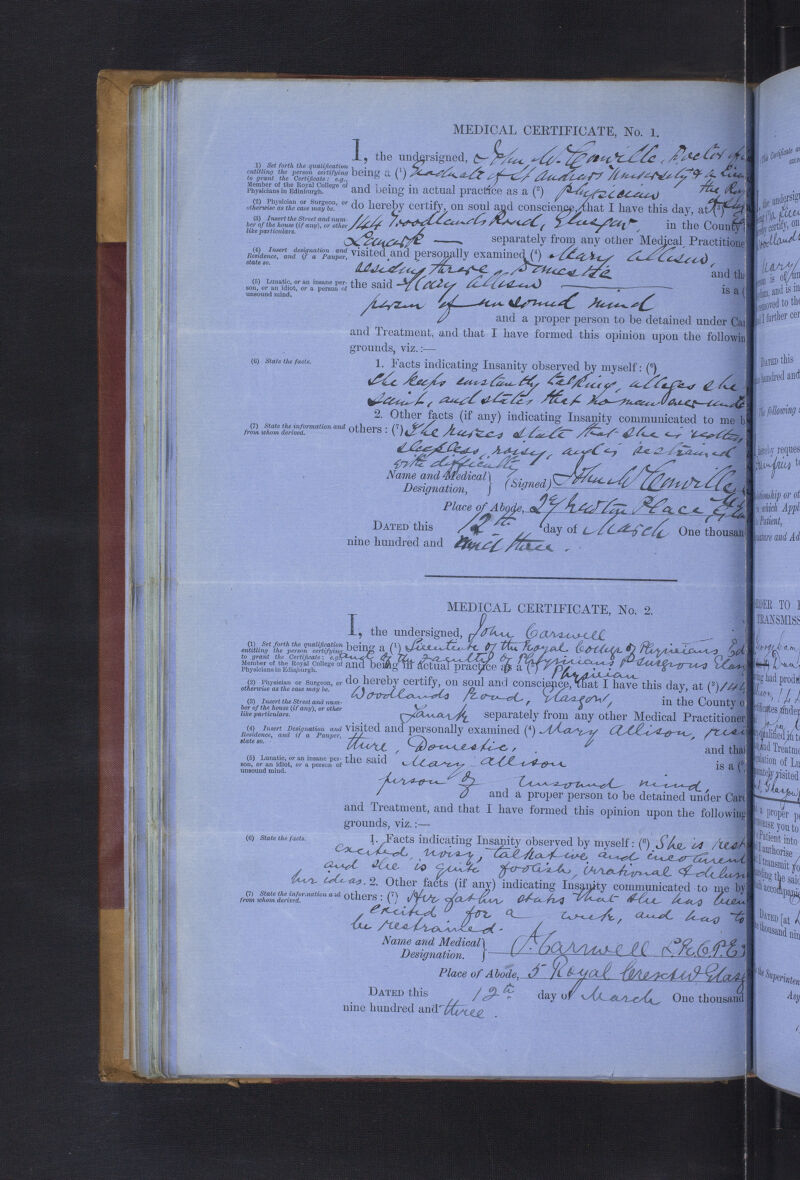 MEDICAL CERTIFICATE, No. 1.
I, the undersigned, John McConville, Doctor of
(1) Set forth the qualification
entitling the person certifying
to grant the Certificate: e.g.,
Member of the Royal College of
Physicians in Edinburgh.
being a (1) Graduate of St Andrews University & a
and being in actual practice as a (2) Physician the
(2) Physician or Surgeon, or
otherwise as the case may be.
do hereby certify, on soul and conscience, that I have this day, at (3)
(3) Insert the Street and num-
ber of the house (if any), or other
like particulars.
144 Woodlands Road, Glasgow, in the County
Lanark — separately from any other Medical Practitione
(4) Insert designation and
Residence, and if a Pauper,
state so.
visited and personally examined (4) Mary Allison,
residing there, Domestic and th
(5) Lunatic, or an insane per-
son, or an idiot, or a person of
unsound mind.
the said Mary Allison is a (
person of unsound mind
and a proper person to be detained under Ca
and Treatment, and that I have formed this opinion upon the followin
grounds, viz.:—
(6) State the facts.
1. Facts indicating Insanity observed by myself: (6)
She keeps constantly talking, alleges she
saint, and states that no man ever
2. Other facts (if any) indicating Insanity communicated to me b
(7) State the information and
from whom derived.
others: (7) The nurses state that she is restless
sleepless, noisy, and is restrained
with difficulty
Name and Medical
Designation,
(Signed) John McConville
Place of Abode, 27 Newton Place
DATED this 12th day of March One thousan
nine hundred and three.
MEDICAL CERTIFICATE, No. 2.
I, the undersigned, John Carswell
(1) Set forth the qualification
entitling the person certifying
to grant the Certificate: e.g.,
Member of the Royal College of
Physicians in Edinburgh.
being a (1) Licentiate of the Royal College of Physicians Ed
and of the Faculty of Physicians & Surgeons Glas
and being in actual practice as a (2) Physician
(2) Physician or Surgeon, or
otherwise as the case may be.
do hereby certify, on soul and conscience, that I have this day, at (3) 144
(3) Insert the Street and num-
ber of the house (if any), or other
like particulars.
Woodlands Road, Glasgow, in the County o
Lanark separately from any other Medical Practitioner
(4) Insert Designation and
Residence, and if a Pauper,
state so.
visited and personally examined (4) Mary Allison, resi
there, Domestic, and that
(5) Lunatic, or an insane per-
son, or an idiot, or a person of
unsound mind.
the said Mary Allison is a (5
person of unsound mind,
and a proper person to be detained under Care
and Treatment, and that I have formed this opinion upon the following
grounds, viz.:—
(6) State the facts.
1. Facts indicating Insanity observed by myself: (6) She is rest
excited, noisy, talkative and incoherent
and she is quite foolish, irrational & delus
her ideas. 2. Other facts (if any) indicating Insanity communicated to me by
(7) State the information and
from whom derived.
others: (7) Her father states that she has been
excited for a week, and has to
be restrained.
Name and Medical
Designation.
J. Carswell L.R.C.P.E
Place of Abode, 5 Royal Crescent Glasg
DATED this 12th day of March One thousand
nine hundred and three.